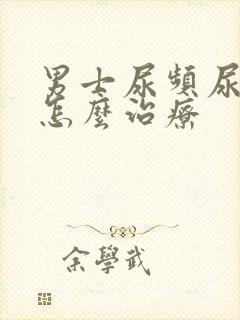 男士尿頻尿
怎麼治療
余學武